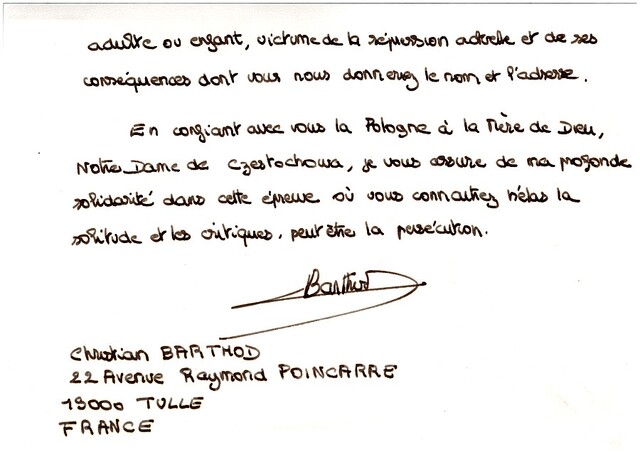 adulte ou enfant, victime de la répression actuelle et de ses
conséquences dont vous nous donnerez le nom et l'adresse.
En confiant avec vous la Pologne à la Mère de Dieu,
Notre Dame de Czestochowa, je vous assure de ma profonde
solidarité dans cette épreuve où vous connaitrez hélas la
solitude et les critiques, peut être la persécution.
Barthod
Christian BARTHOD
22 Avenue Raymond POINCARRE
19000 TULLE
FRANCE